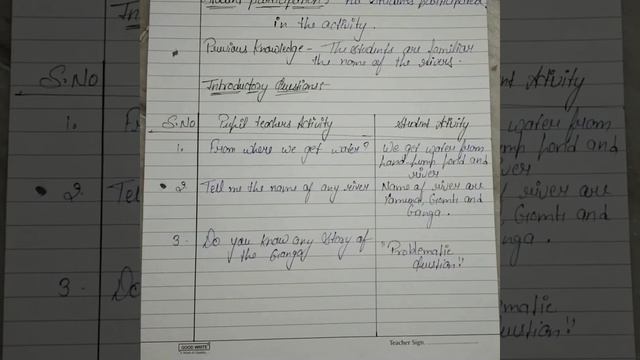 Student participation - No students participated
in the activity.
Previous Knowledge - The students are familiar
the name of the rivers.
Introductory Questions-
S.No Pupil teachers Activity Student Activity
1. From where we get water? We get water from
hand pump pond and
river
2. Tell me the name of any river Name of river are
Yamuna, Gomti and
Ganga.
3. Do you know any story of
the Ganga "Problematic
Question"
GOOD WRITE
Teacher Sign.